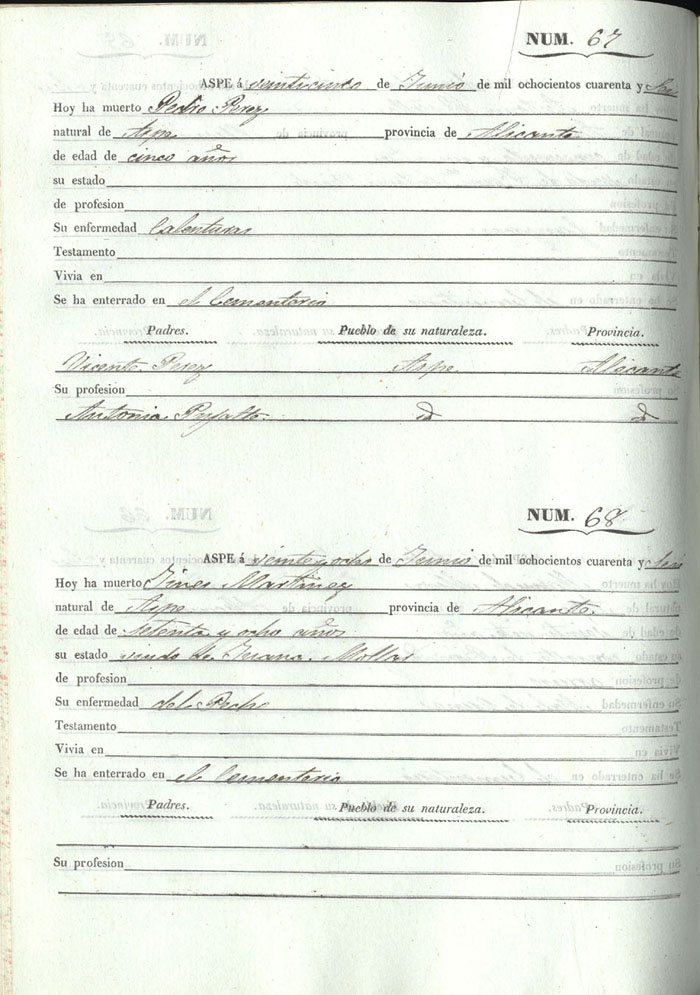 NUM. 67
ASPE á veinticinco de Junio de mil ochocientos cuarenta y Seis
Hoy ha muerto Pedro Perez
natural de Aspe provincia de Alicante
de edad de cinco años
su estado
de profesion
Su enfermedad Calenturas
Testamento
Vivia en
Se ha enterrado en el Cementerio
Padres. Pueblo de su naturaleza. Provincia.
Vicente Perez Aspe Alicante
Su profesion
Antonia
NUM. 68
ASPE á veinte y ocho de Junio de mil ochocientos cuarenta y Seis
Hoy ha muerto Gines Martinez
natural de Aspe provincia de Alicante.
de edad de setenta y ocho años
su estado viudo de Juana Mollar
de profesion
Su enfermedad del Pecho
Testamento
Vivia en
Se ha enterrado en el Cementerio
Padres. Pueblo de su naturaleza. Provincia.
Su profesion